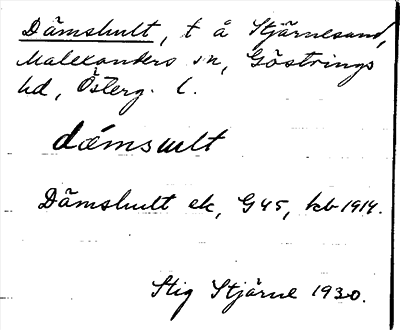 Dämshult, t å Stjärnesand,
Malexanders sn, Göstrings
hd, Österg. l.
dämsult
Dämshult ek, G45, kb 1914.
Stig Stjärne 1930.